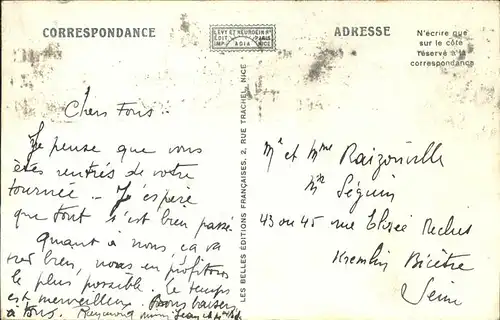 CORRESPONDANCE
LÉVY ET NEURDEIN Rs
ÉDIT. PARIS
IMP. ADIA NICE
ADRESSE
N'écrire que
sur le côté
réservé à la
correspondance
Chers Tous
Je pense que vous
êtes rentrés de votre
tournée _ J'espère
que tout s'est bien passé
Quant à nous ça va
très bien, nous en profitons
le plus possible. Le temps
est merveilleux. Bons baisers
à tous. Raymond
LES BELLES ÉDITIONS FRANÇAISES, 2, RUE TRACHEL, NICE
Mr et Mme Raizonville
Mr Séguin
43 ou 45 rue Elisée Reclus
Kremlin Bicêtre
Seine